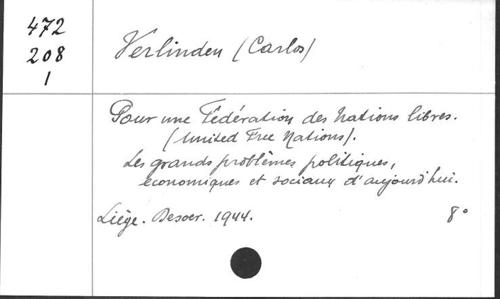 472
208
1
Verlinden (Carlos)
Pour une Fédération des Nations libres.
(United Free Nations).
Les grands problèmes politiques,
économiques et sociaux d'aujourd'hui.
Liège. Desoer. 1944. 8°